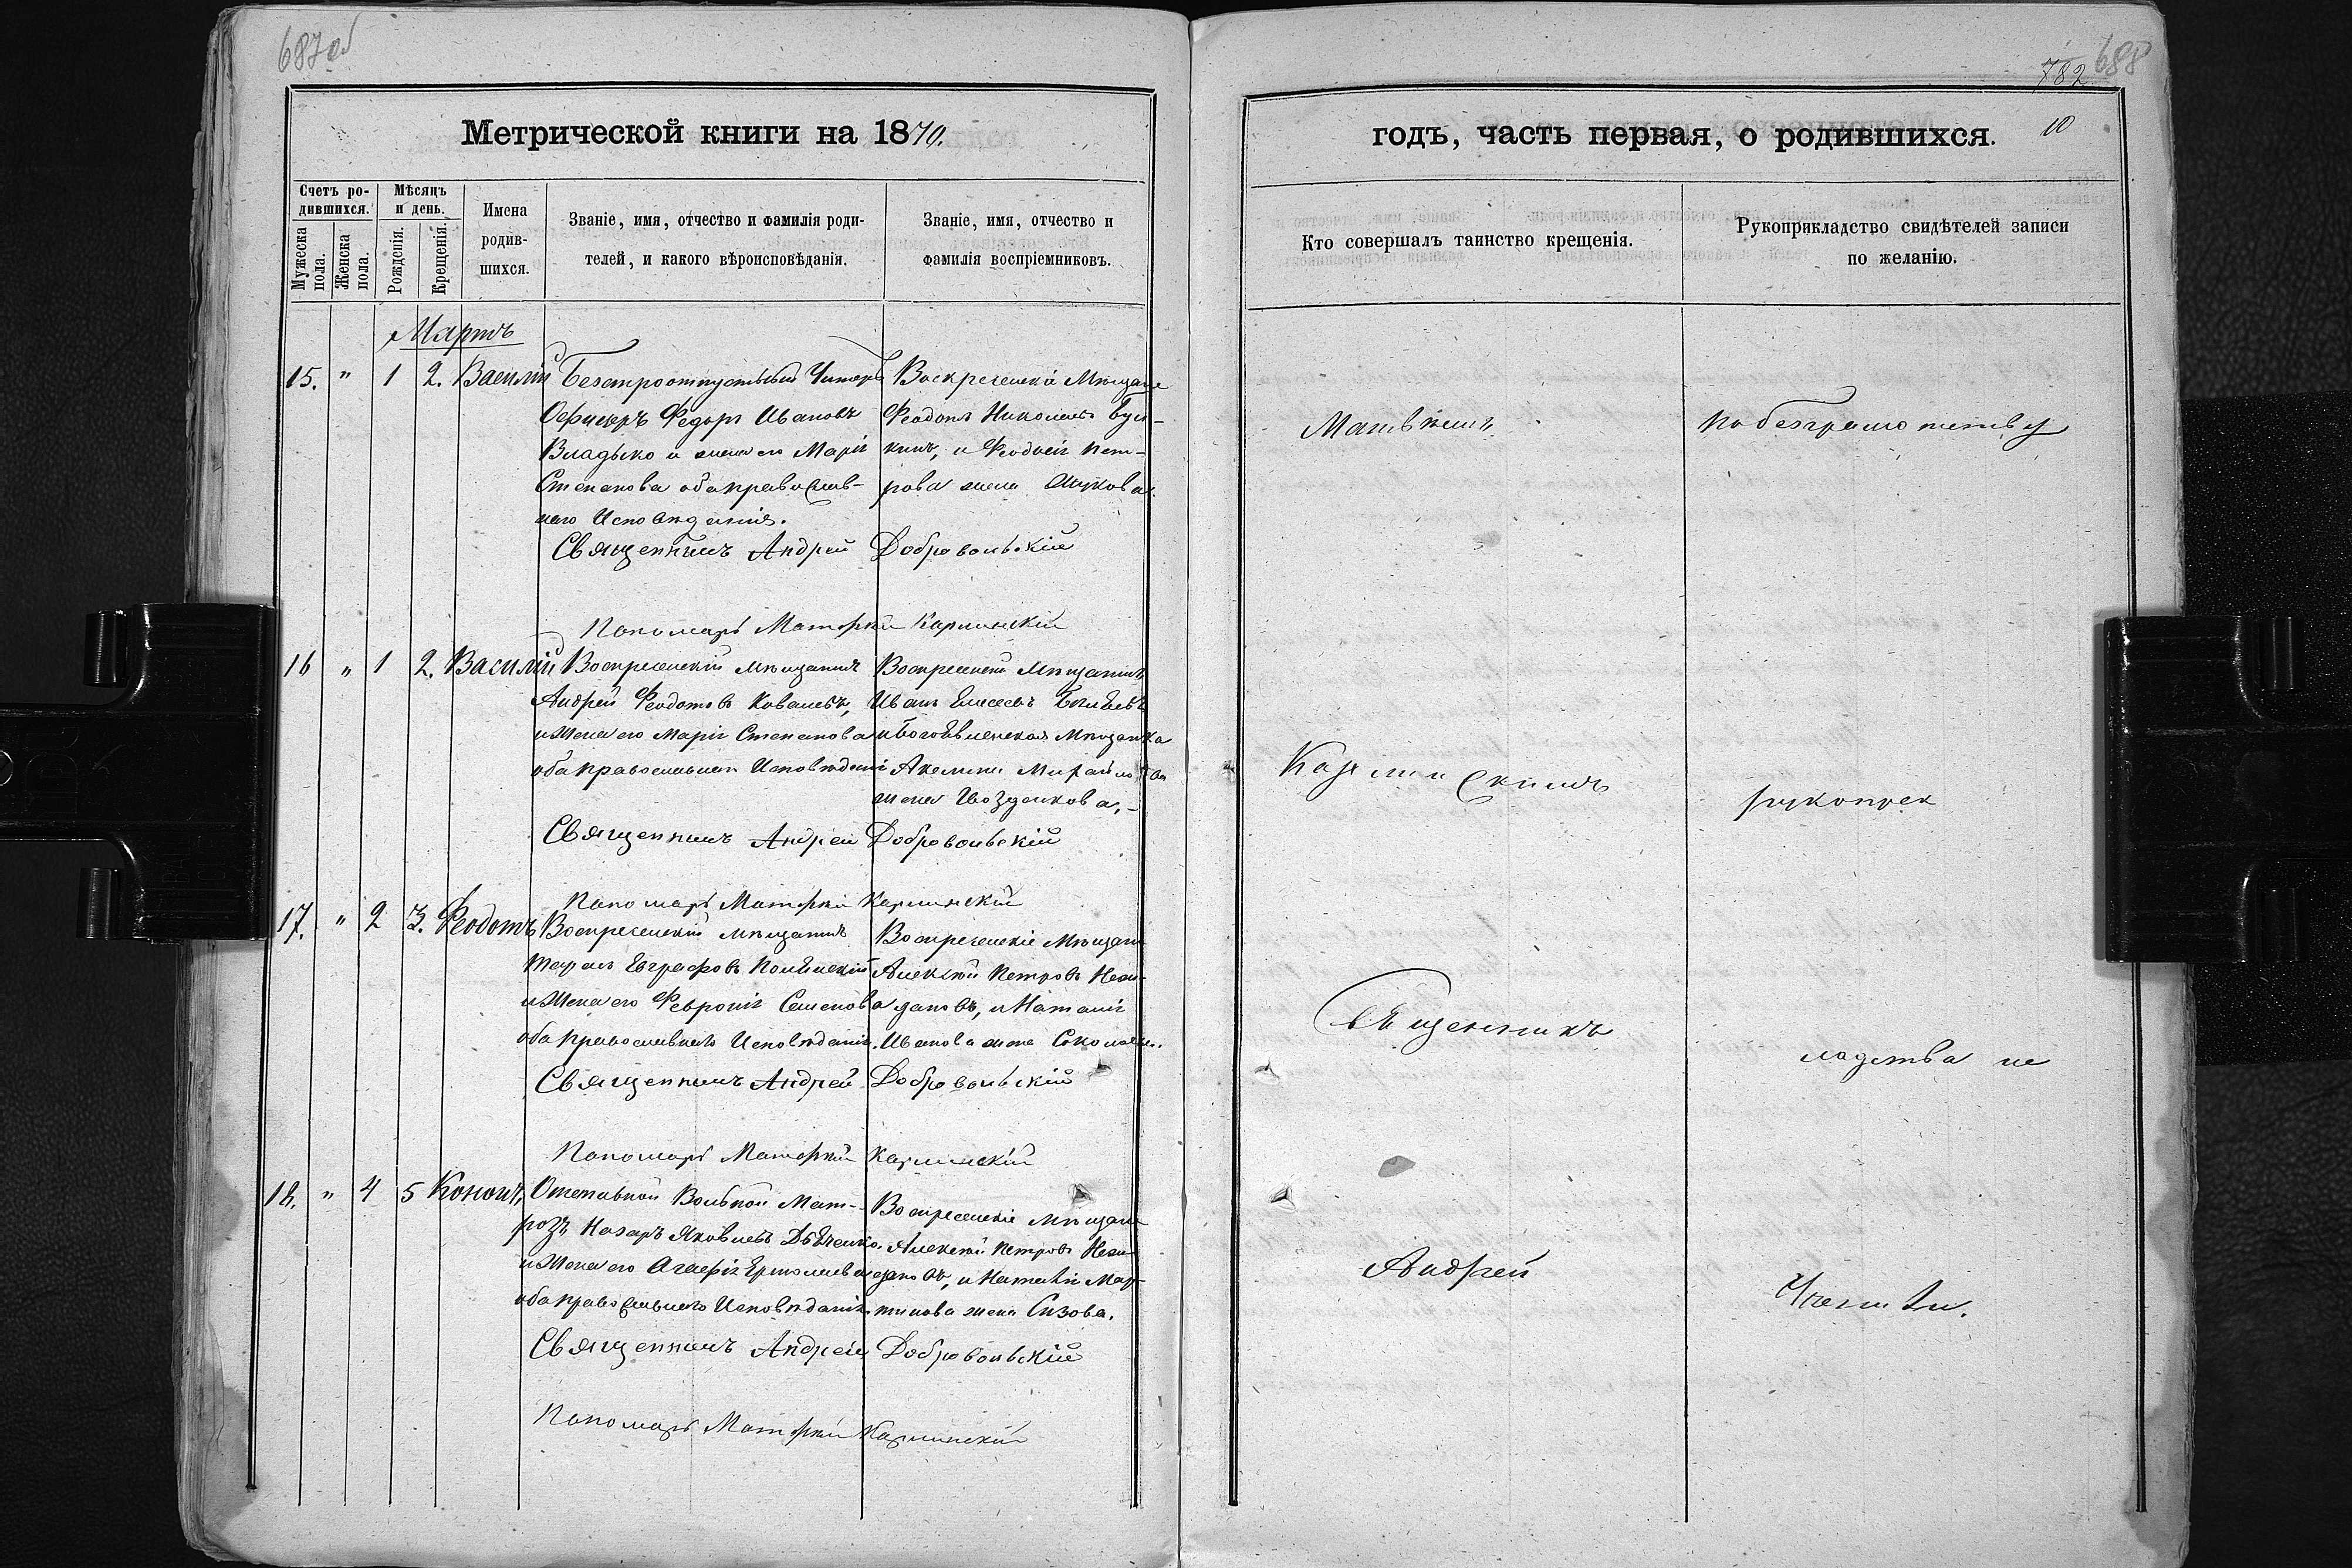 687 об
782 688
Метрической книги на 1870.
годъ, часть первая, о родившихся. 10
Счетъ ро-
дившихся.
Мужеска
пола.
Женска
пола.
Мѣсяцъ
и день.
Рожденія.
Крещенія.
Имена
родив-
шихся.
Званіе, имя, отчество и фамилія роди-
телей, и какого вѣроисповѣданія.
Званіе, имя, отчество и
фамилія воспріемниковъ.
Кто совершалъ таинство крещенія.
Рукоприкладство свидѣтелей записи
по желанію.
Мартъ
15. " 1 2. Василій
Унтеръ
Офицеръ Федоръ Ивановъ
Владыко и жена его Марія
Степанова оба православ-
наго Исповѣданія.
Ѳеодотъ Николаевъ
и Ѳеодосія Пет-
рова жена
Священникъ Андрей Добровольскій
Пономарь Матѳей Карминскій
16 " 1 2. Василій
Воскресенскій мѣщанинъ
Андрей Ѳеодотовъ Ковалевъ,
и жена его Марія Степанова
оба православнаго Исповѣданія
Воскресенскій Мѣщанинъ
Иванъ Елисеевъ
и Богоявленская Мѣщанка
Акелина Михайлова
жена Гвозденкова,-
Священникъ Андрей Добровольскій
Пономарь Матѳей Карминскій
17. " 2 3. Ѳеодотъ
Воскресенскій мѣщанинъ
Тарасъ Евграфовъ
и Жена его Февронія Семенова
оба православнаго Исповѣданія.
Воскресенскіе Мѣщане
Алексѣй Петровъ Неги-
дановъ, и Наталія
Иванова жена
Священникъ Андрей Добровольскій
Пономарь Матѳей Карминскій
18. " 4 5 Кононъ,
Отставной Вольной Мат-
розъ Назаръ Яковлевъ Дьяченко.
и Жена его Агафія Ермолаева
оба православнаго Исповѣданія.
Воскресенскіе Мѣщане
Алексѣй Петровъ Неги-
дановъ, и Наталія Мар-
тинова жена Сизова.
Священникъ Андрей Добровольскій
Пономарь Матѳей Карминскій
По безграмотству
рукопрек
ладства не
Карминскимъ
Священникъ
Андрей